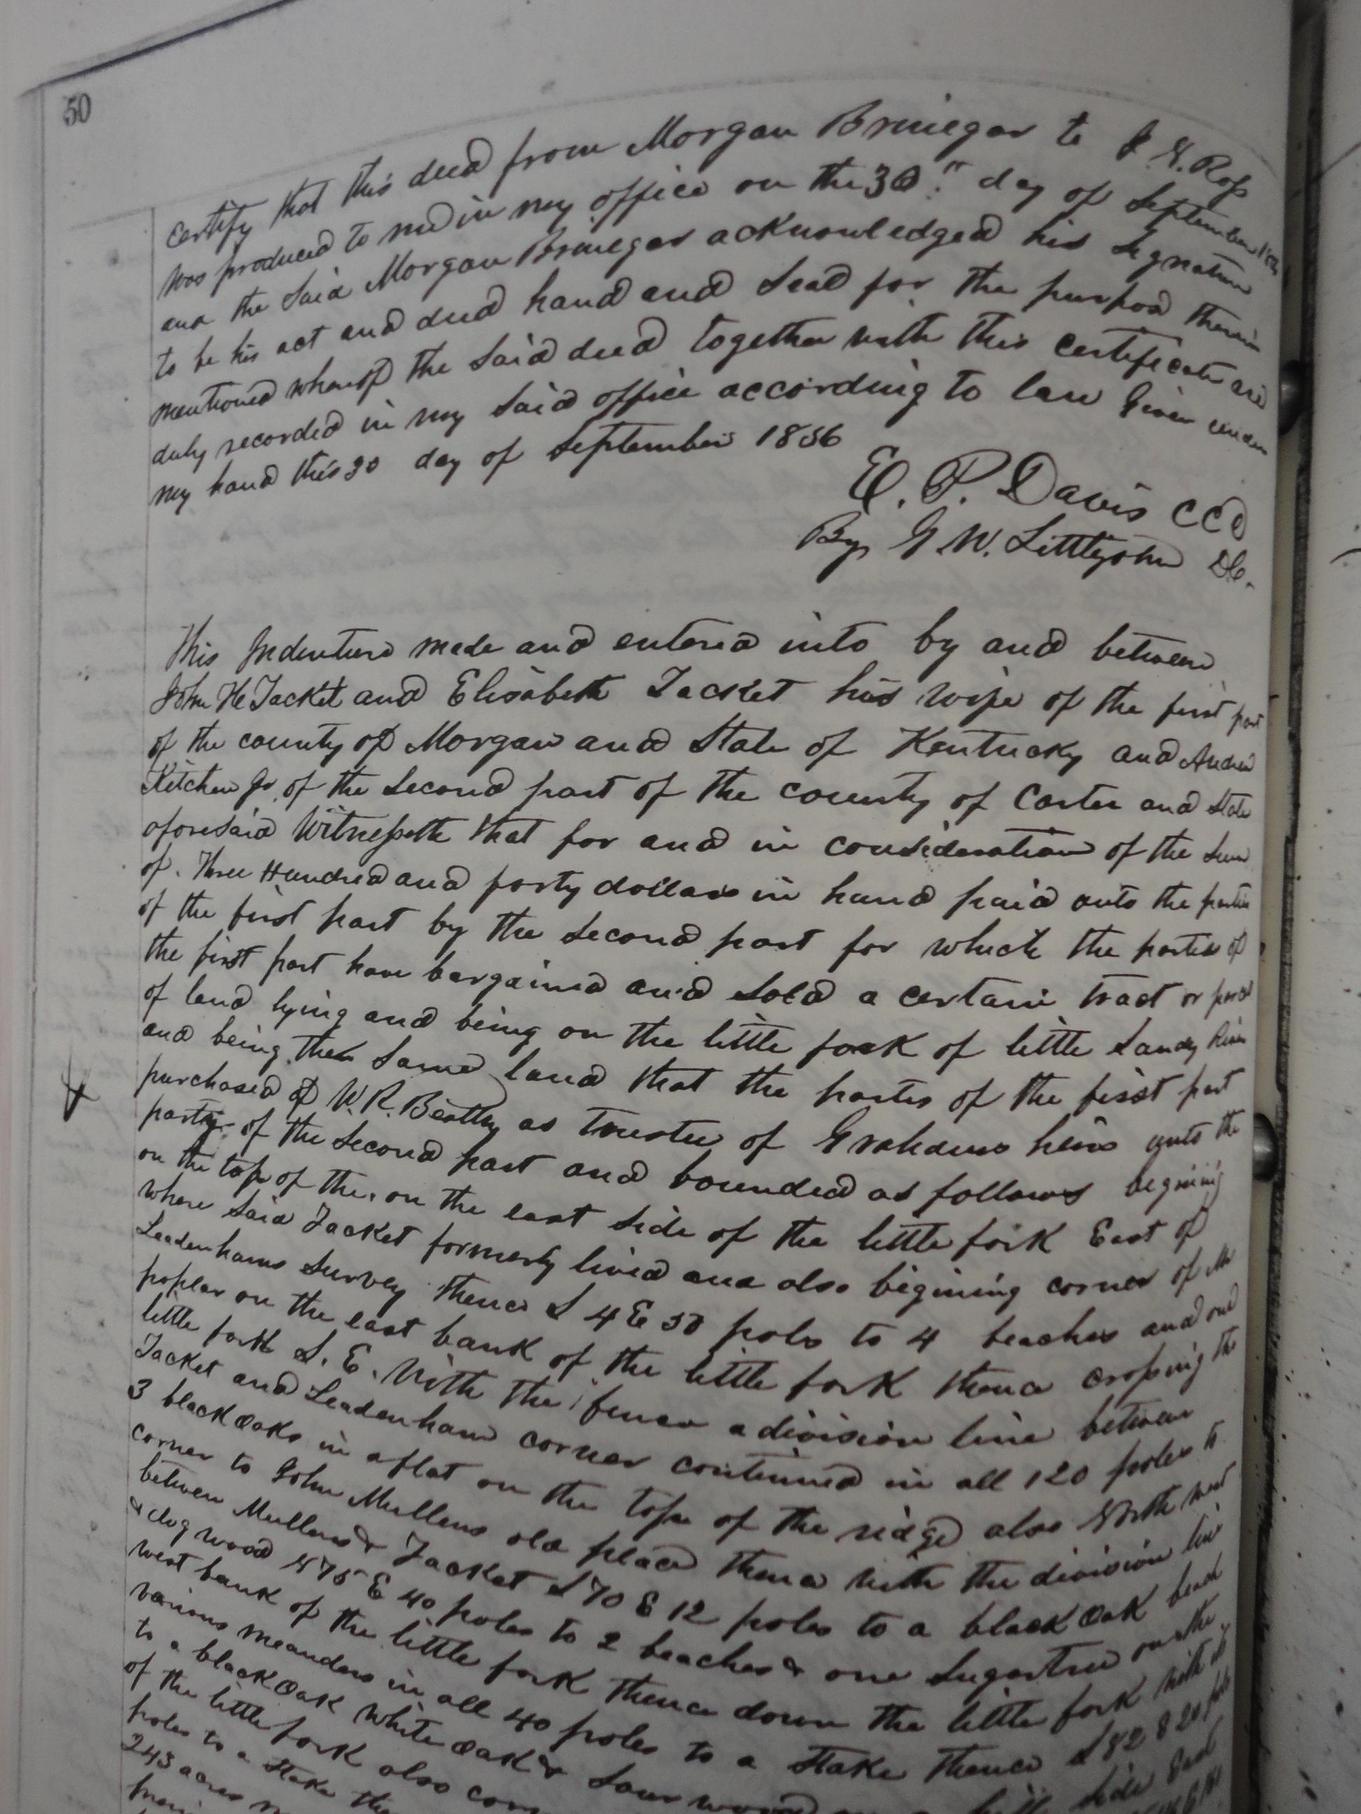 50
certify that this deed from Morgan Brinegar to J. G. Ross
was produced to me in my office on the 30th day of September
and the Said Morgan Brinegar acknowledged his Signature
to be his act and deed hand and Seal for the purpose therein
mentioned whereof the Said deed together with this certificate are
duly recorded in my Said office according to law Given under
my hand this 30 day of September 1856
E. P. Davis CCC
By G. W. Littlejohn DC.
This Indenture made and entered into by and between
John H Jacket and Elisabeth Jacket his wife of the first part
of the county of Morgan and State of Kentucky and Andrew
Kitchen Jr. of the Second part of the county of Carter and State
aforesaid Witnesseth that for and in consideration of the Sum
of Three Hundred and forty dollars in hand paid unto the parties
of the first part by the Second part for which the parties of
the first part have bargained and Sold a certain tract or parcel
of land lying and being on the little fork of little Sandy River
and being the Same land that the parties of the first part
purchased of W. R. Beatty as trustee of Grahams heirs unto the
party of the Second part and bounded as follows begining
on the top of the, on the east Side of the little fork East of
where Said Jacket formerly lived and also begining corner of
Leadenhams Survey thence S 4 E 58 poles to 4 beaches and one
poplar on the east bank of the little fork thence crossing the
little fork S. E. With the fence a division line between
Jacket and Leadenham corner continued in all 120 poles to
3 black oaks in a flat on the top of the ridge also North west
corner to John Mullens old place thence with the division line
between Mullens & Jacket S 70 E 12 poles to a black oak beach
& dog wood S 75 E 40 poles to 2 beaches & one Sugartree on the
west bank of the little fork thence down the little fork with its
various meanders in all 40 poles to a Stake thence S 82 E 20 poles
to a black oak White oak & Sour wood Side East
of the little fork also
poles to a Stake
243 acres